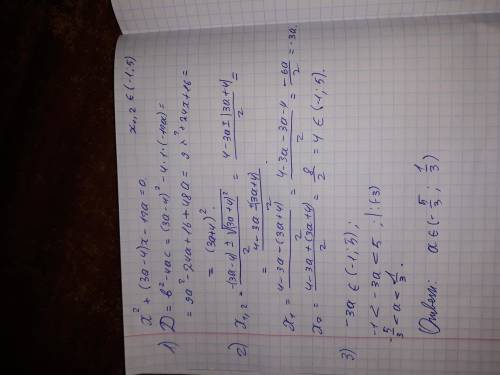 x² + (3a-4)x - 12a = 0. x₁,₂ ∈ (-1;5)
1) D = b² - 4ac = (3a-4)² - 4·1·(-12a) =
= 9a² - 24a + 16 + 48a = 9a² + 24a + 16 =
= (3a+4)²
2) x₁,₂ = -(3a-4) ± √(3a+4)² / 2 = 4-3a ± |3a+4| / 2 =
= 4-3a ± (3a+4) / 2.
x₁ = 4-3a-(3a+4) / 2 = 4-3a-3a-4 / 2 = -6a / 2 = -3a.
x₂ = 4-3a+(3a+4) / 2 = 8 / 2 = 4 ∈ (-1;5).
3) -3a ∈ (-1;5);
-1 < -3a < 5 ; |:(-3)
-5/3 < a < 1/3.
Ответ: a ∈ (-5/3; 1/3)